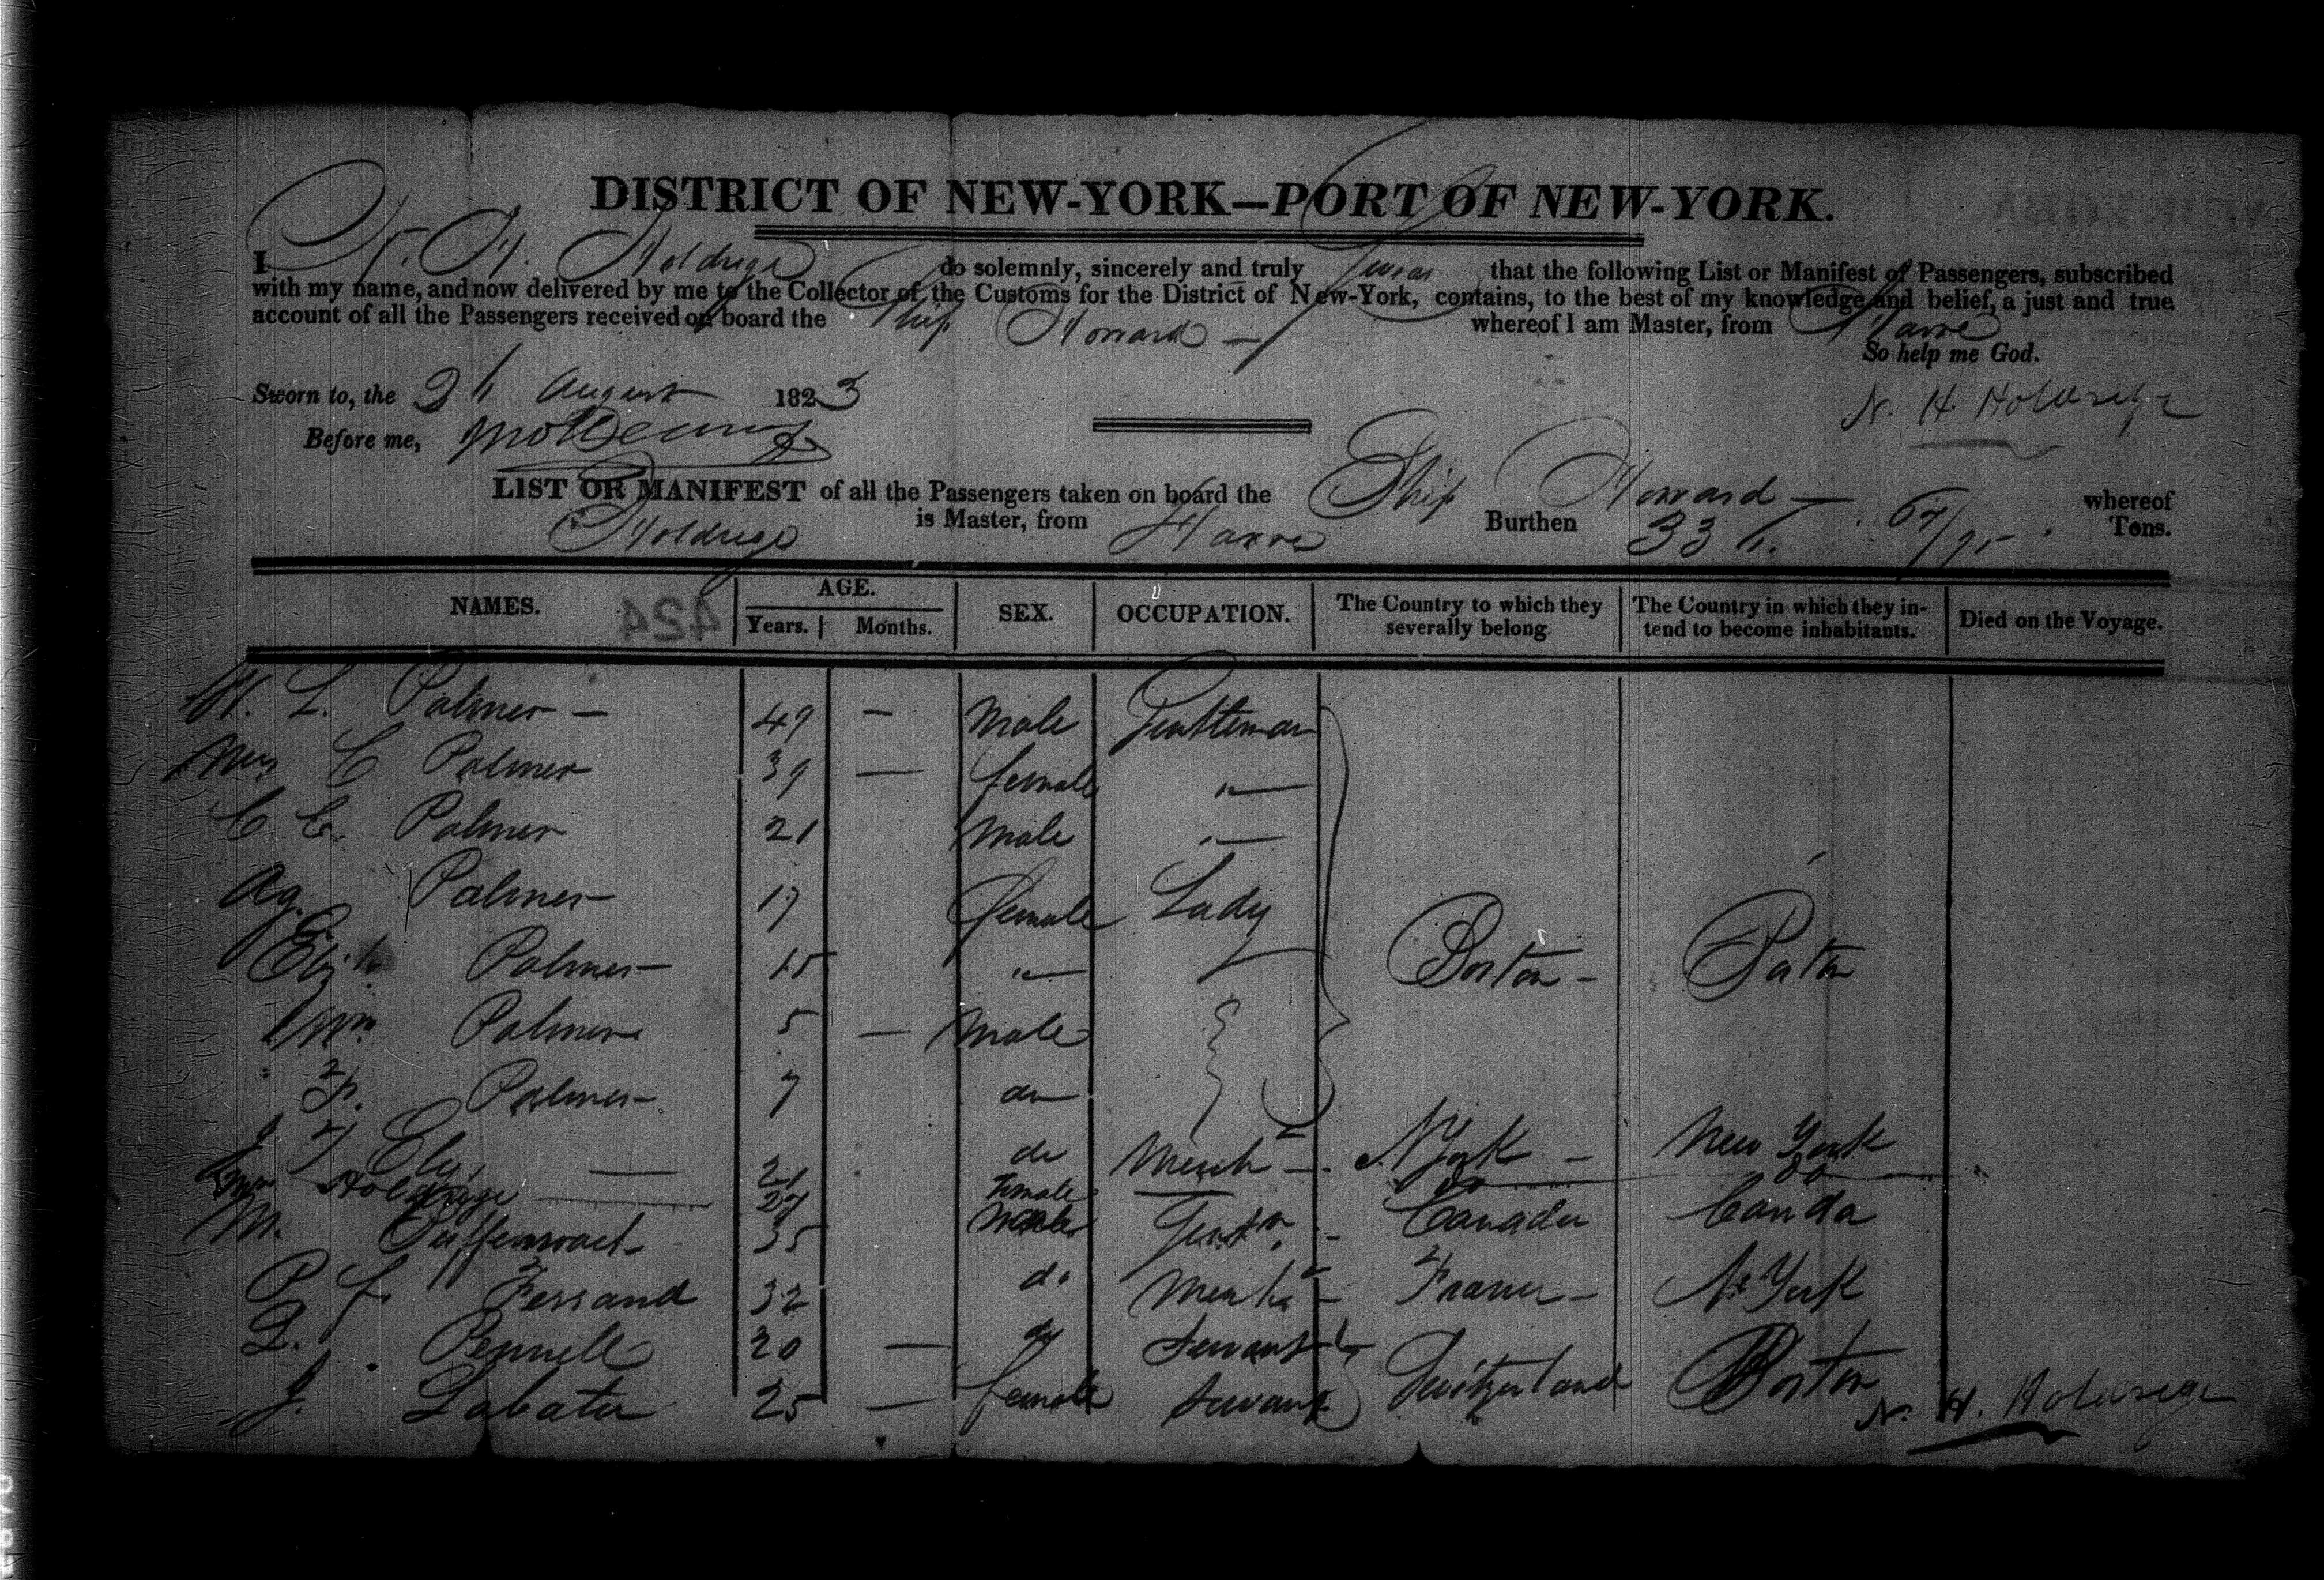 DISTRICT OF NEW-YORK—PORT OF NEW-YORK.
I N. H. Holdrege do solemnly, sincerely and truly swear that the following List or Manifest of Passengers, subscribed
with my name, and now delivered by me to the Collector of the Customs for the District of New-York, contains, to the best of my knowledge and belief, a just and true
account of all the Passengers received on board the Ship Howard — whereof I am Master, from Havre
So help me God.
Sworn to, the August 1823
N. H. Holdrege
Before me,
LIST OR MANIFEST of all the Passengers taken on board the Ship Howard — whereof
Holdrege is Master, from Havre Burthen Tons.
NAMES. AGE. SEX. OCCUPATION. The Country to which they severally belong The Country in which they intend to become inhabitants. Died on the Voyage.
Years. Months.
424
H. L. Palmer — 49 — Male Gentleman
Mrs C Palmer 39 — female "—
C. C. Palmer 21 Male "—
Ag. Palmer 17 female Lady
Eliz. Palmer 15 "— Boston — Boston
Wm Palmer 5 — Male
F. Palmer 7 do
J. F. Ely — 21 do Mercht — N York — New York
Holdrege 27 Female do do
M. 35 Male Gentn. - Canada Canada
P. J. Fessand 32 do Mercht — France — N. York
L. Pennell 20 — do Servant
J. Labater 25 — female Servant Switzerland Boston
N. H. Holdrege